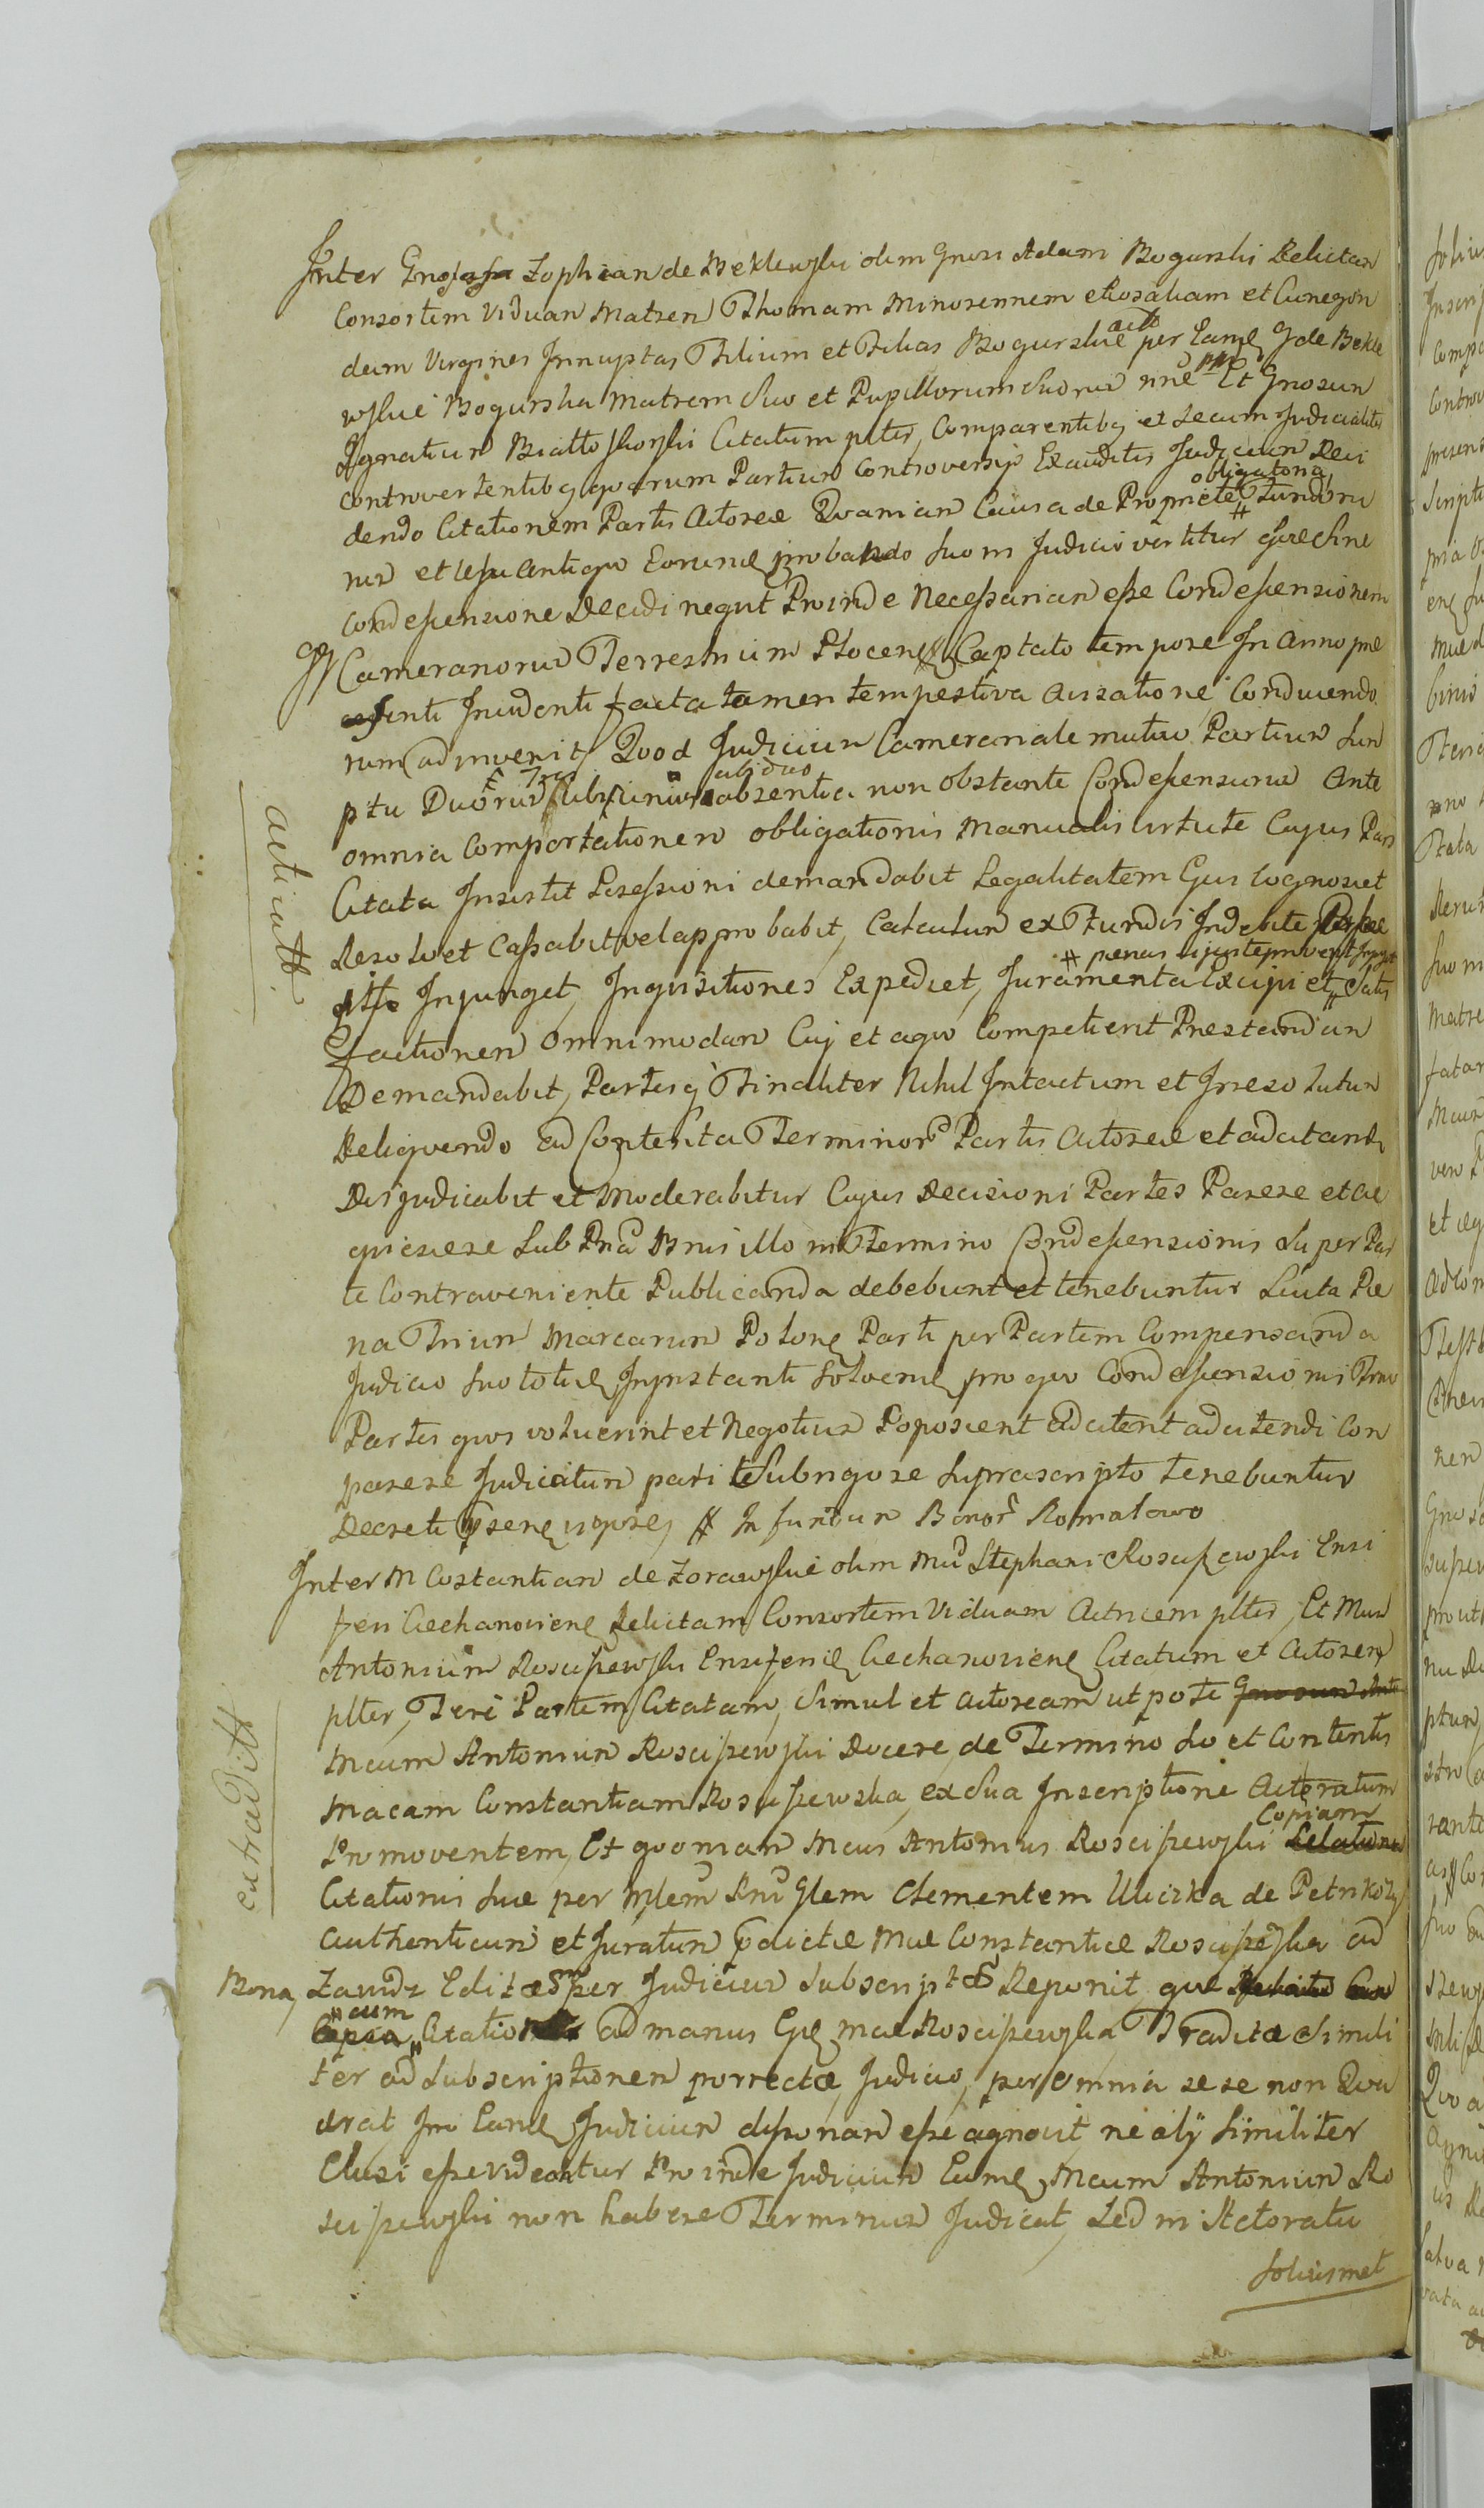 Inter Gnosam Zophian de Beklewski olim Gnosi Adami Bogurski Relictan
Consortem Viduan Matren Thomam Minorennem et Rosaliam et Cunegon
dam Virgines Innuptas Filium et Filias Bogurskie act. per Eamq Gde Bekle
wskie Bogurska Matrem Suo et Pupillorum Suorum nne Et Gnosun
Ignatiun Białłoskorski Citatum plter, Comparentibq et secum Judicialiter
controvertentibq quarum Partiun Controversijs Exauditis Judiciun Deci
dendo Citationem Partis Actoreæ Quanian Causa de Proprietе obligatoria # Fundoru
rus et Usu antiquo Eorumq probando Suo in Judicio vertitur quæ Sine
Condescensione Decidi nequit Proinde Necessarian esse Condescensionem
Cameranorum Terrestrium Plocensq Captato tempore In Anno præ
senti Incidenti facta tamen tempestiva Avisatione, Conducendo
rum adinvenit, Quod Judiciun Cameranale mutuo Partiun Sun
ptu Duorum unius absentia non obstante Condescensurus Ante
omnia Comportationem obligationis Manualis virtute Cuyus Pars
Citata Insistit Possessioni demandabit Legalitatem Eius Cognoscet
Resolvet Cassabit vel approbabit, Calculun ex Fundis Indebite
Injunget, Inquisitiones Expediet, Juramenta Excipiet # Satis
factionem omnimodan Cuj et a quo Competierit Prestandun
Demandabit, Partesq Finaliter Nihil Intactum et Irresolutun
Relinquendo ad Contenta Terminor Partis Actoreæ et adcitandi
Disjudicabit et Moderabitur Cuyus Decisioni Partes Parere et ac
quiescere Sub Pna Bnis illo in Termino Condescensionis Super Par
te Contraveniente Publicanda debebunt et tenebuntur Luita Pæ
na Triun Marcarun Polonq Parti per Partem Compensanda
Judicio Suo totieq Injnstanti Solvenq pro quo Condescensionis Trmo
Partes quos voluerint et Negotiun Poposcerit adcitent adcitendi Con
parere Judicatun pati Sub rigore Suprascripto tenebuntur
Decreti psenq vigore, # In fundun Bonor Romatowo
Inter M Costantian de Zorawskie olim Mci Stephani Rosciszewski Ensi
feri Ciechanoviensq Relictam Consortem Viduam Actricem plter, Et Mcun
Antonium Rosciszewski Ensiferiq Ciechanoviensq Citatum et Actorem
plter, Feri Partem Citatam, Simul et Actoream ut pote
Mcum Antoniun Rosciszewski Docere de Termino Suo et Contentis
Macam Constantiam Rosciszewska, ex Sua Inscriptione Actoratum
Promoventem, Et quonian Mcus Antonius Rosciszewski Copiam
Citationis Suæ per Mstem Rni Glem Clementem Uliczka de Petrikozy
Authenticun et Juratun pdictæ Mcæ Constantiæ Rosciszewska ad
Bona, Zawidz Editæ per Judiciun Subscriptæ Reponit quæ
cum Citatio ad manus Ejq mcæ Rosciszewska Traditæ Simili
ter ad Subscriptionem porrectæ, Judicio, per omnia se se non Qua
drat, Imo Eamq Judiciun disponan esse agnovit ne alij Similiter
Elusi esse videantur Proinde Judiciun Eumq Mcum Antoniun Ro
sciszewski non habere Terminun Judicat, Sed in Actoratu
Soliusmet
extraditt